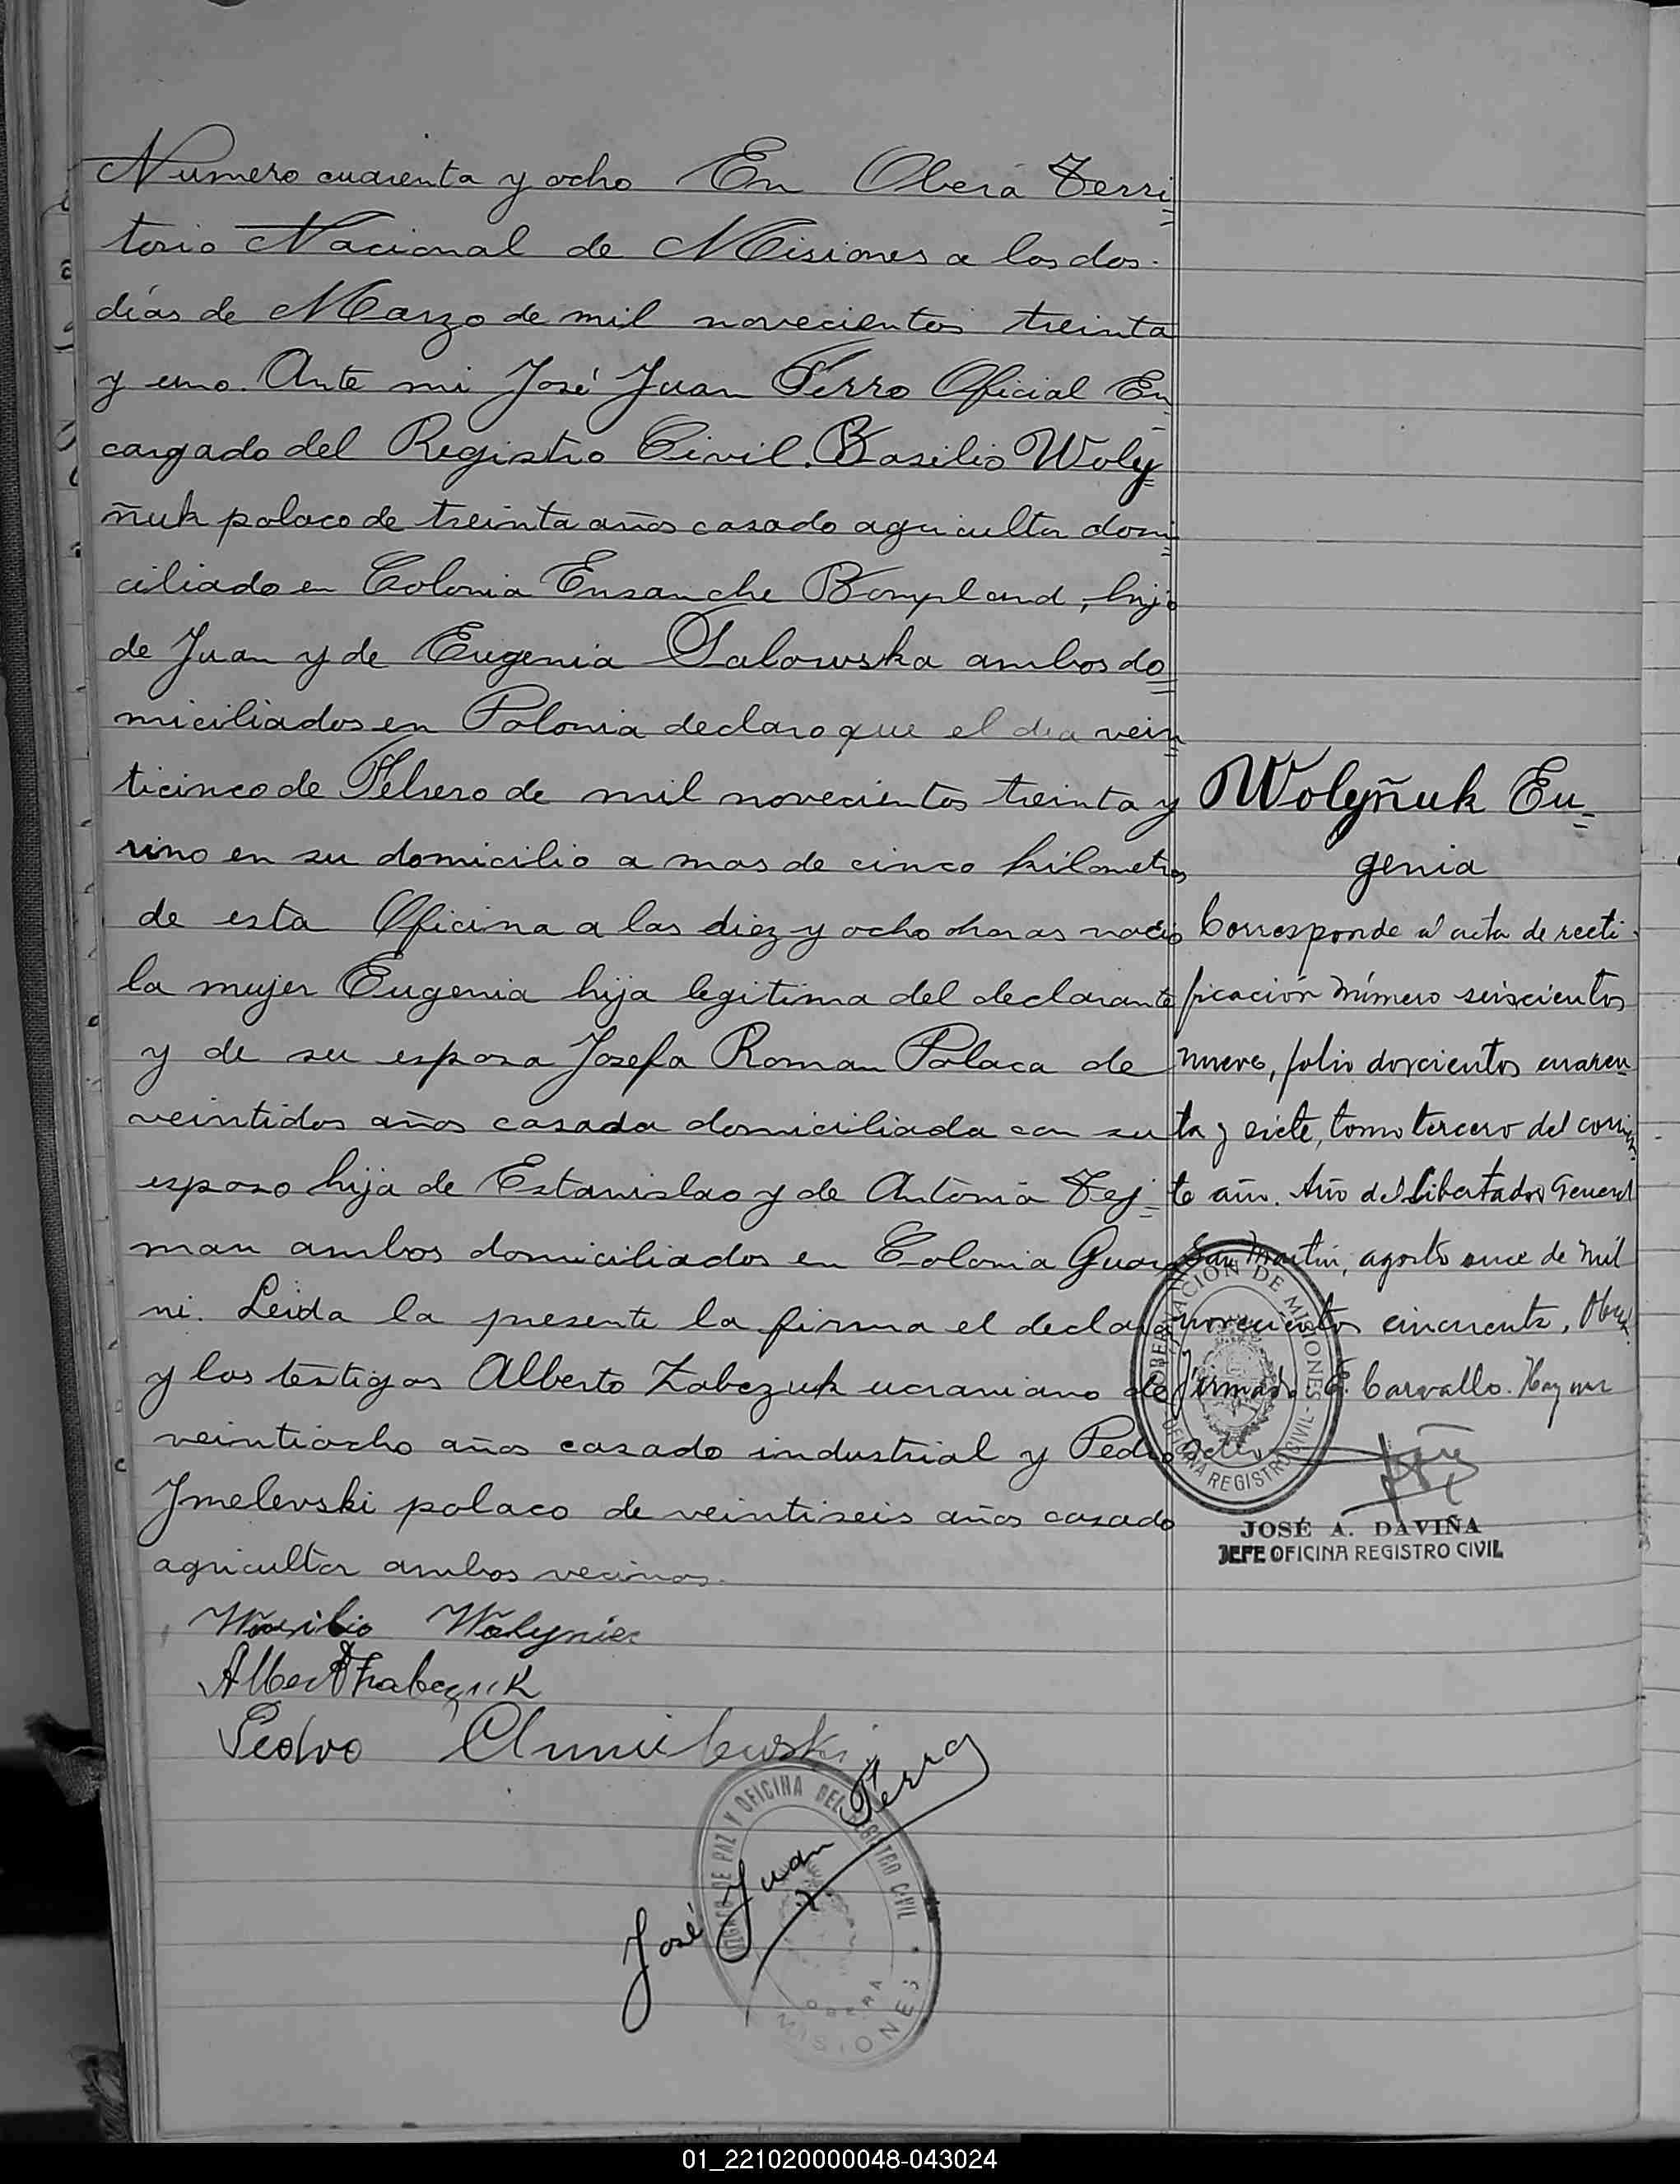 Numero cuarenta y ocho En Oberá Terri=
torio Nacional de Misiones a los dos.
días de Marzo de mil novecientos treinta
y uno. Ante mi José Juan Ferro Oficial En
cargado del Registro Civil. Basilio Woly=
ñuk polaco de treinta años casado agricultor domi=
ciliado en Colonia Ensanche Bompland, hijo
de Juan y de Eugenia Salowska ambos do=
miciliados en Polonia declaro que el dia vein=
ticinco de Febrero de mil novecientos treinta y
uno en su domicilio a mas de cinco kilometros
de esta Oficina a las diez y ocho horas nacio
la mujer Eugenia hija legitima del declarante
y de su esposa Josefa Roman Polaca de
veintidos años casada domiciliada con su
esposo hija de Estanislao y de Antonia Tej=
man ambos domiciliados en Colonia Guara
ni. Leida la presente la firma el declara
y los testigos Alberto Zabczuk ucraniano de
veintiocho años casado industrial y Pedro
Jmelevski polaco de veintiseis años casado
agricultor ambos vecinos.
Wolyñuk Eu=
genia
Corresponde al acta de recti-
ficación número seiscientos
nueve, folio doscientos cuaren
ta y siete, tomo tercero del corrien
te año. Año del Libertador General
San Martín, agosto once de mil
novecientos cincuenta.
firmado: Carvallo. Hay un
sello
GOBERNACION DE MISIONES
OFICINA REGISTRO CIVIL
JOSÉ A. DAVIÑA
JEFE OFICINA REGISTRO CIVIL
Wasilio
Albert Zabczuk
Pedro Chmielewski
José Juan Ferro
JUZGADO DE PAZ Y OFICINA DEL REGISTRO CIVIL
OBERA
MISIONES
01_221020000048-043024